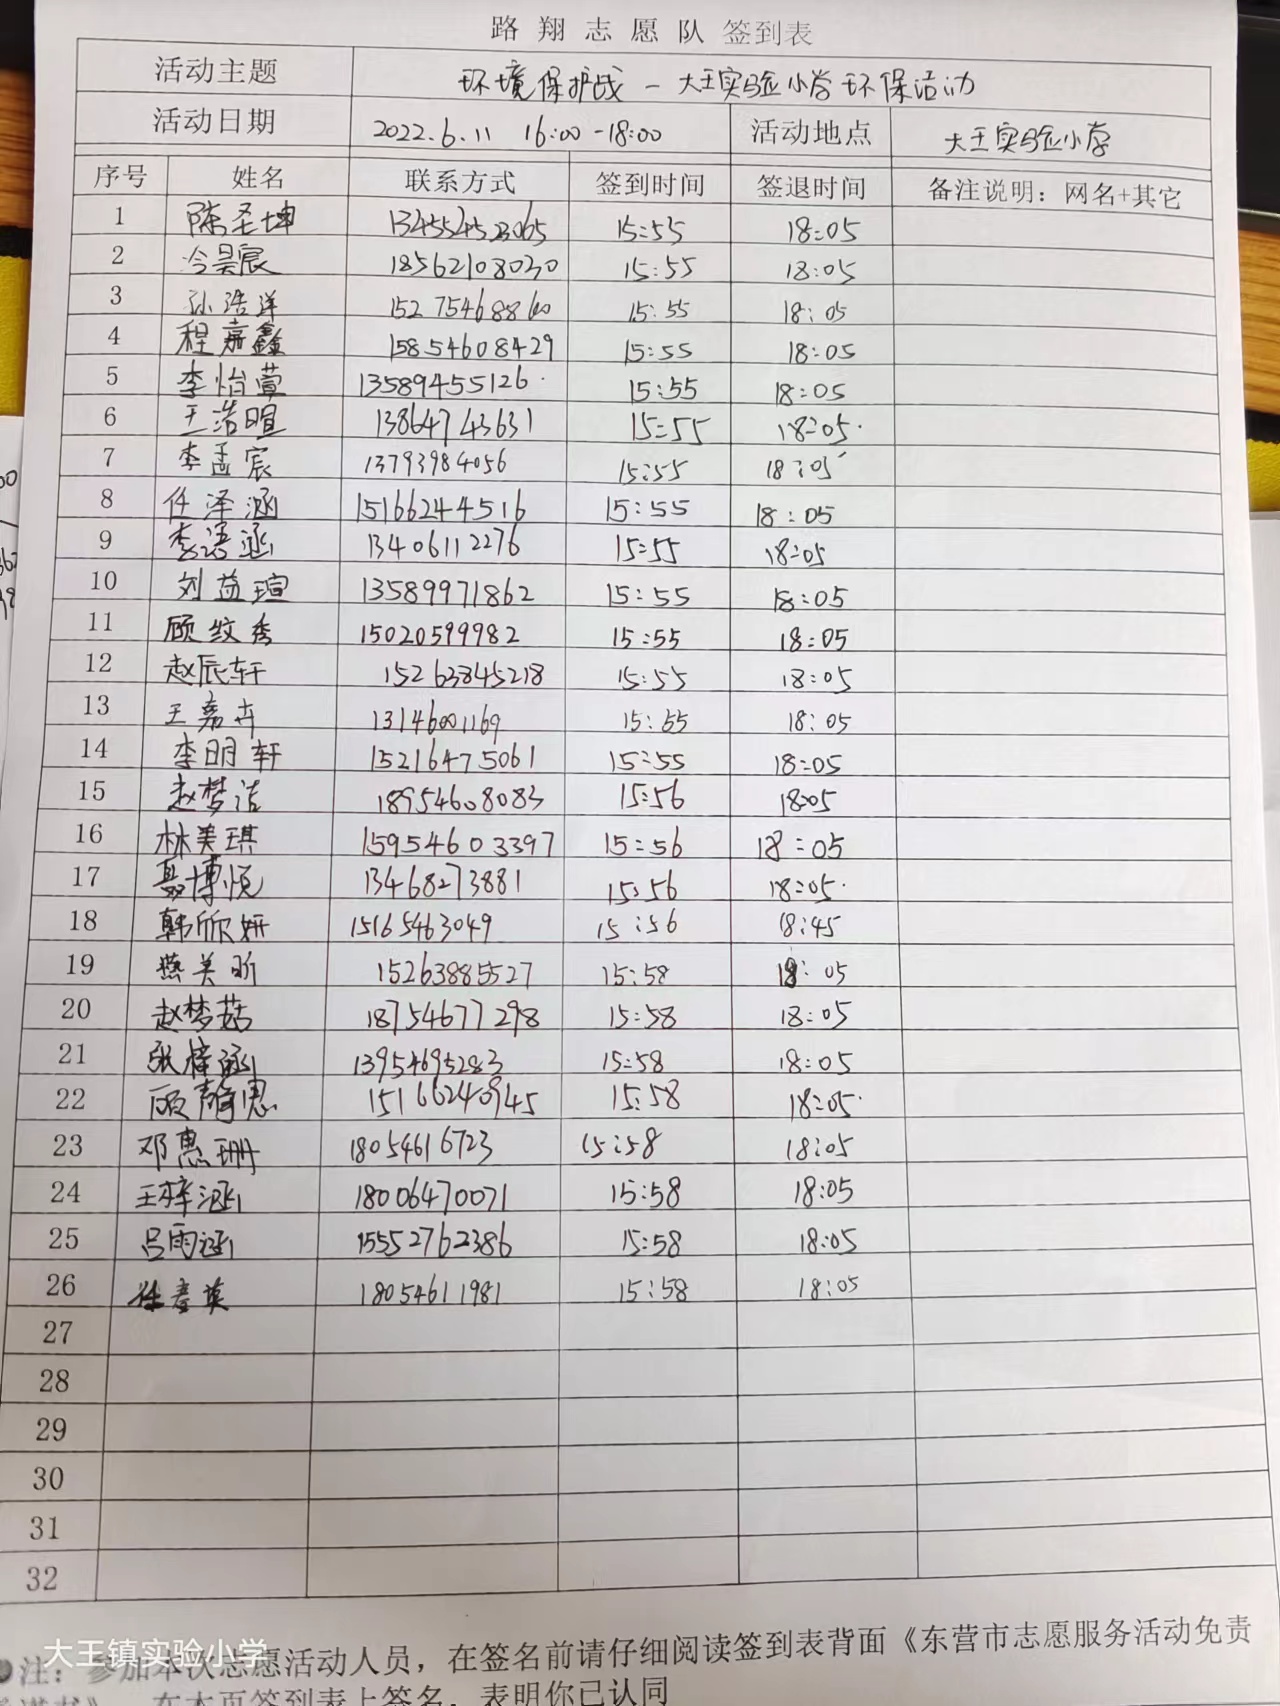 路翔志愿队 签到表
活动主题 环境保护战－大王实验小学环保活动
活动日期 2022.6.11 16:00-18:00 活动地点 大王实验小学
序号 姓名 联系方式 签到时间 签退时间 备注说明：网名+其它
1 陈圣坤 15:55 18:05
2 冷昊宸 18562108030 15:55 18:05
3 孙浩洋 15275468860 15:55 18:05
4 程嘉鑫 15854608429 15:55 18:05
5 李怡萱 13589455126 15:55 18:05
6 王浩暄 13864743631 15:55 18:05
7 李孟宸 13793984056 15:55 18:05
8 任泽涵 15166244516 15:55 18:05
9 李语涵 13406112276 15:55 18:05
10 刘益瑄 13589971862 15:55 18:05
11 顾纹秀 15020599982 15:55 18:05
12 赵辰轩 15263845218 15:55 18:05
13 王嘉卉 13146001169 15:55 18:05
14 李明轩 15216475061 15:55 18:05
15 赵梦洁 18954608083 15:56 18:05
16 林美琪 15954603397 15:56 18:05
17 聂博悦 13468273881 15:56 18:05
18 韩欣妍 15165463049 15:56 18:45
19 燕美昕 15263885527 15:58 18:05
20 赵梦菇 18754677298 15:58 18:05
21 张梓涵 13954695283 15:58 18:05
22 顾静思 15166240945 15:58 18:05
23 邓惠珊 18054616723 15:58 18:05
24 王梓涵 18006470071 15:58 18:05
25 吕雨涵 15552762386 15:58 18:05
26 18054611981 15:58 18:05
27
28
29
30
31
32
大王镇实验小学
注：参加本次志愿活动人员，在签名前请仔细阅读签到表背面《东营市志愿服务活动免责
承诺书》，在本页签到表上签名，表明你已认同